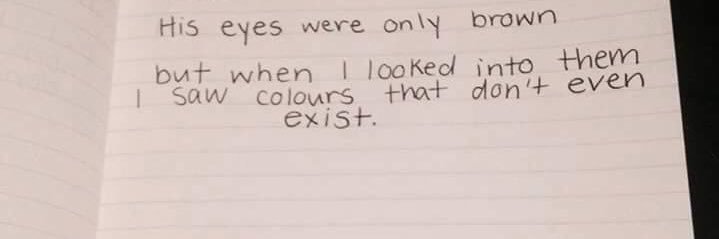 His eyes were only brown
but when I looked into them
I saw colours that don't even
exist.